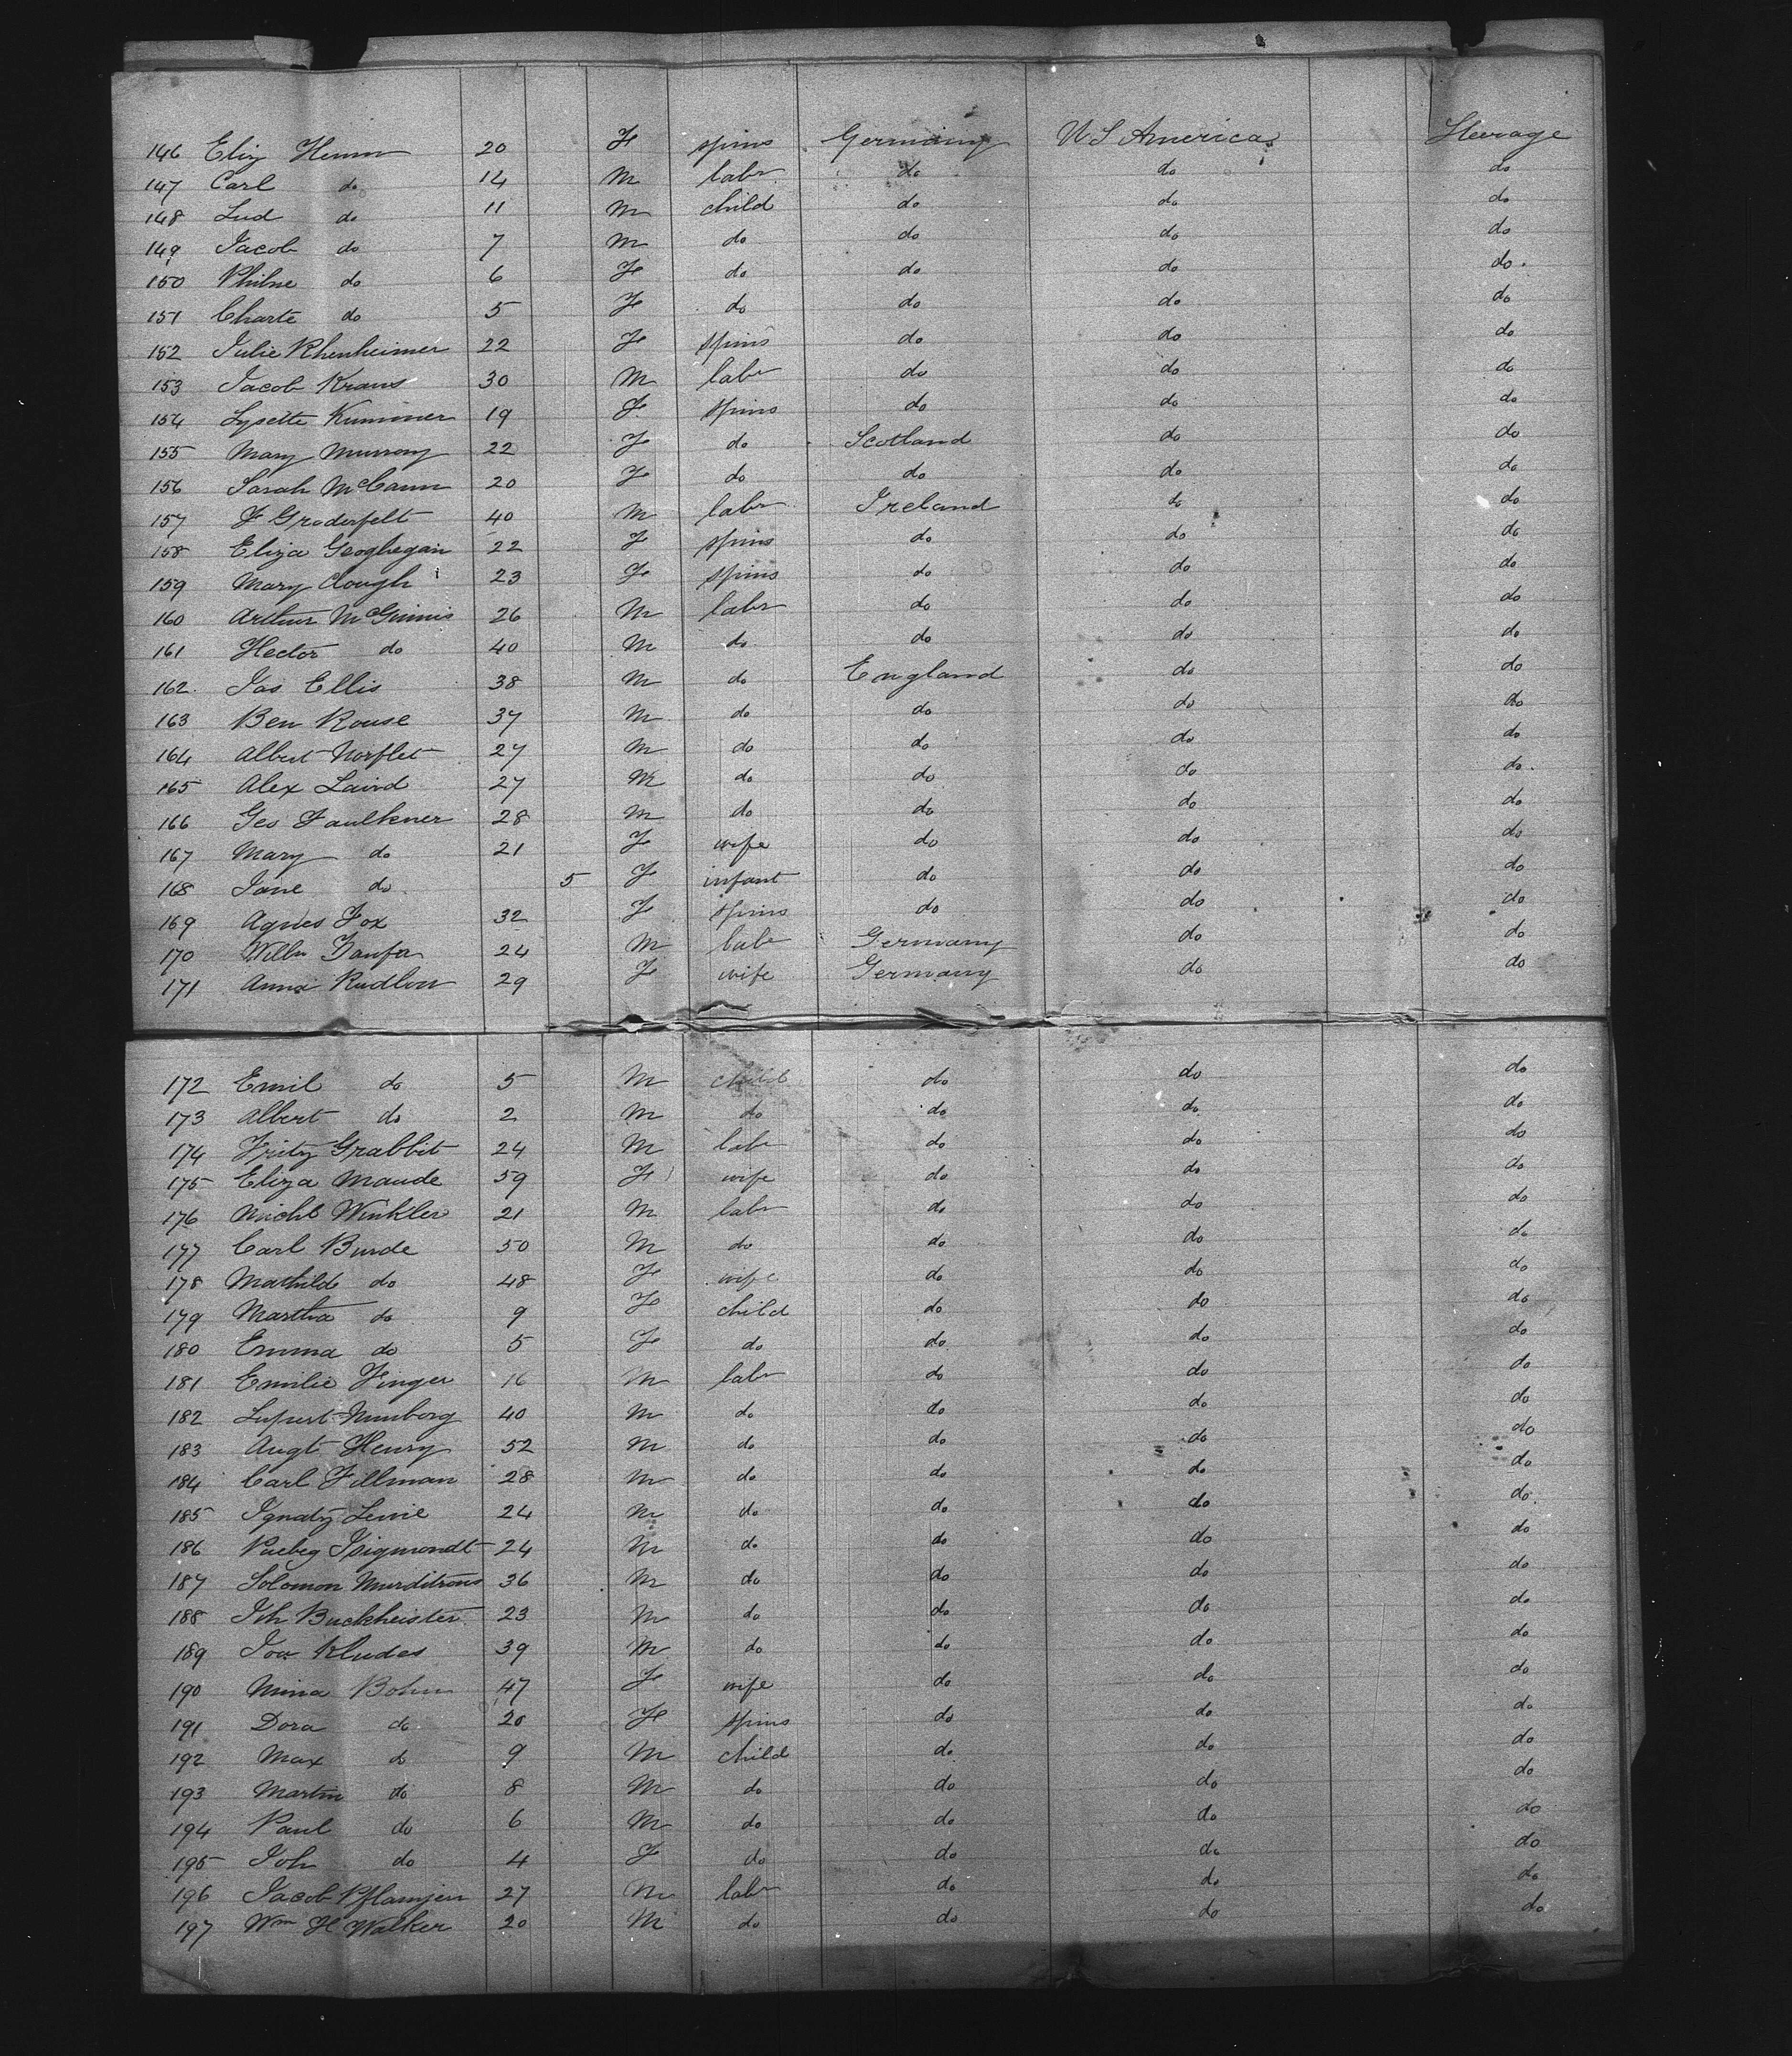 146 Eliz Humm 20 F spins Germany U S America Steerage
147 Carl do 14 M labr do do do
148 Lud do 11 M child do do do
149 Jacob do 7 M do do do do
150 Philne do 6 F do do do do
151 Charte do 5 F do do do do
152 Julie Rhenheimer 22 F spins do do do
153 Jacob Kraus 30 M labr do do do
154 Lysette Kummer 19 F spins do do do
155 Mary Murray 22 F do Scotland do do
156 Sarah McCann 20 F do do do do
157 F Graderfelt 40 M labr Ireland do do
158 Eliza Geoghegan 22 F spins do do do
159 Mary Clough 23 F spins do do do
160 Arthur McGinnis 26 M labr do do do
161 Hector do 40 M do do do do
162 Jas Ellis 38 M do England do do
163 Ben Rouse 37 M do do do do
164 Albert Norflet 27 M do do do do
165 Alex Laird 27 M do do do do
166 Geo Faulkner 28 M do do do do
167 Mary do 21 F wife do do do
168 Jane do 5 F infant do do do
169 Agnes Fox 32 F spins do do do
170 Willm 24 M labr Germany do do
171 Anna Rudlow 29 F wife Germany do do
172 Emil do 5 M child do do do
173 Albert do 2 M do do do do
174 Fritz Grabbit 24 M lab do do do
175 Eliza Maude 59 F wife do do do
176 Michl Winkler 21 M labr do do do
177 Carl Burde 50 M do do do do
178 Mathilde do 48 F wife do do do
179 Martha do 9 F child do do do
180 Emma do 5 F do do do do
181 Emilie Finger 16 M labr do do do
182 40 M do do do do
183 Augt Henry 52 M do do do do
184 Carl Fillman 28 M do do do do
185 Ignatz Levie 24 M do do do do
186 24 M do do do do
187 Solomon 36 M do do do do
188 Joh Buckheister 23 M do do do do
189 Kludas 39 M do do do do
190 Mina Bohm 47 F wife do do do
191 Dora do 20 F spins do do do
192 Max do 9 M child do do do
193 Martin do 8 M do do do do
194 Paul do 6 M do do do do
195 Joh do 4 F do do do do
196 Jacob 27 M labr do do do
197 Wm H Walker 20 M do do do do